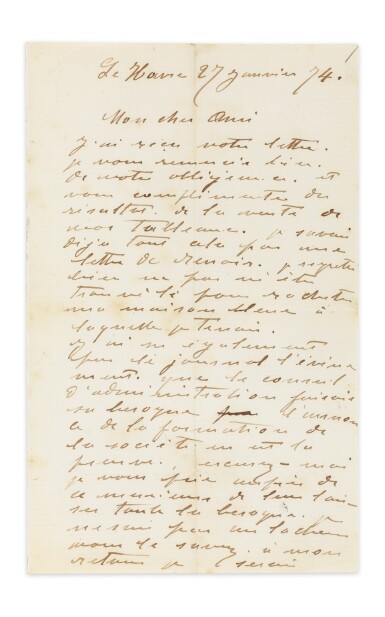 Le Havre 27 janvier 74.
Mon cher Ami
J'ai reçu votre lettre.
je vous remercie bien.
de votre obligeance. et
vous complimente du
résultat. de la vente de
nos tableaux. je savais
déjà tout cela par une
lettre de Renoir. je regrette
bien ne pas m'être
trouvé là pour racheter
ma maison bleue à
laquelle je tenais.
J'ai su également
par le journal l'événe
ment. que le conseil
d'administration faisait
sa besogne l'annon
ce de la formation de
la société en est la
preuve. excusez-moi
je vous prie auprès de
ces messieurs de leur lais-
ser toute la besogne. je
ne suis pas un lâcheur
vous le savez. à mon
retour je serai